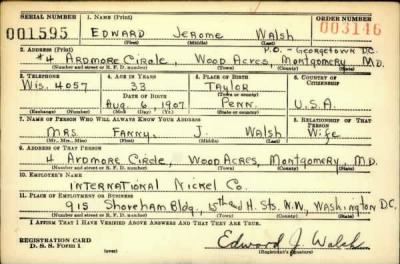 SERIAL NUMBER 1. NAME (Print) ORDER NUMBER
001595 EDWARD JEROME WALSH 003146
(First) (Middle) (Last)
2. ADDRESS (Print) P.O. - GEORGETOWN D.C.
#4 ARDMORE CIRCLE, WOOD ACRES, MONTGOMERY, MD.
(Number and street or R. F. D. number) (Town) (County) (State)
3. TELEPHONE 4. AGE IN YEARS 5. PLACE OF BIRTH 6. COUNTRY OF CITIZENSHIP
WIS. 4057 33 TAYLOR
DATE OF BIRTH (Town or county)
AUG. 6, 1907 PENN. U.S.A.
(Exchange) (Number) (Mo.) (Day) (Yr.) (State or country)
7. NAME OF PERSON WHO WILL ALWAYS KNOW YOUR ADDRESS 8. RELATIONSHIP OF THAT PERSON
MRS. FANNY J. WALSH WIFE
(Mr., Mrs., Miss) (First) (Middle) (Last)
9. ADDRESS OF THAT PERSON
4 ARDMORE CIRCLE, WOOD ACRES, MONTGOMERY, MD.
(Number and street or R. F. D. number) (Town) (County) (State)
10. EMPLOYER'S NAME
INTERNATIONAL NICKEL CO.
11. PLACE OF EMPLOYMENT OR BUSINESS
915 SHOREHAM BLDG., 15th and H. STS. N.W., WASHINGTON D.C.
(Number and street or R. F. D. number) (Town) (County) (State)
I AFFIRM THAT I HAVE VERIFIED ABOVE ANSWERS AND THAT THEY ARE TRUE.
REGISTRATION CARD
D. S. S. Form 1 Edward J. Walsh
(Registrant's signature)